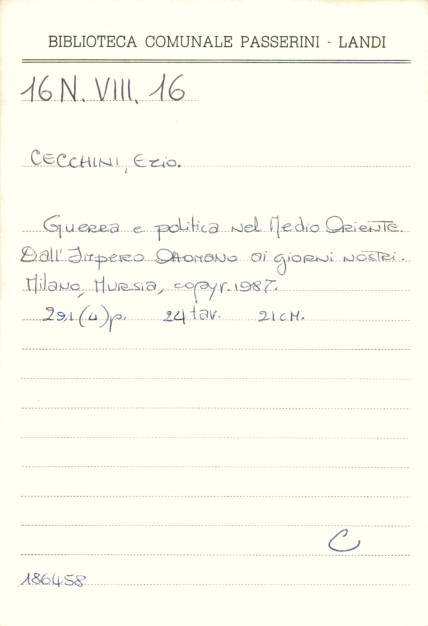 BIBLIOTECA COMUNALE PASSERINI - LANDI
16 N. VIII. 16
CECCHINI, Ezio.
Guerra e politica nel Medio Oriente.
Dall'Impero Ottomano ai giorni nostri.
Milano, Mursia, copyr. 1987.
291 (4) p. 24 tav. 21 cm.
C
186458